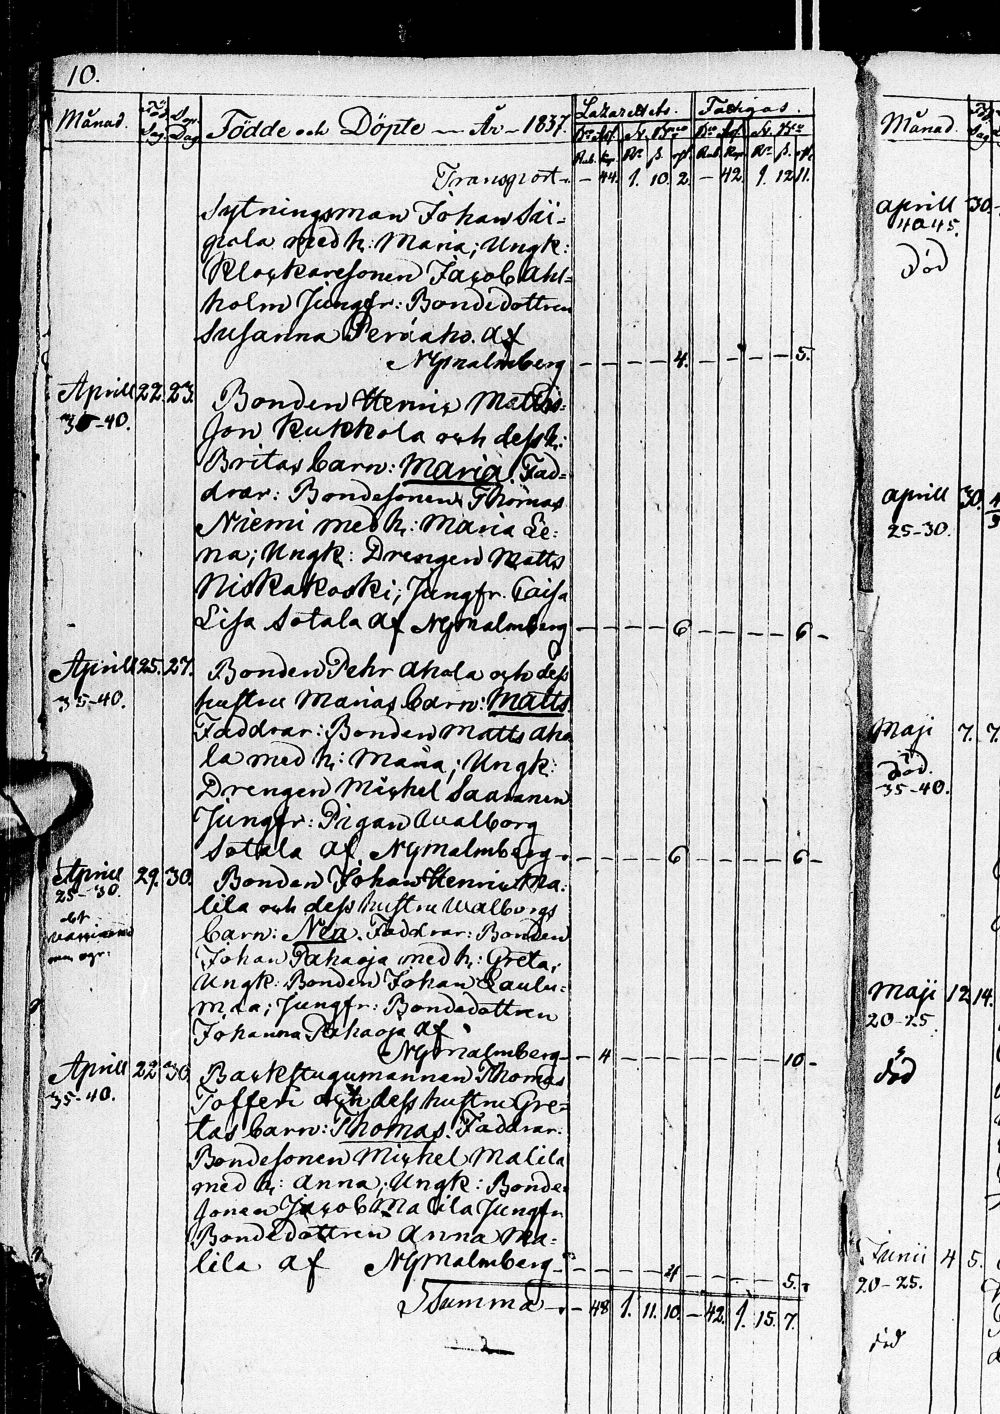 10.
Månad. Föd. Dag Döp. Dag Födde och Döpte — År — 1837. Lazarettets. Fattigas.
Transport — 44. 1. 10. 2. — 42. 1. 12. 11.
Sytningsman Johan Sii=
pola med h: Maria; Ungk:
Klockaresonen Jacob Ahl=
holm Jungfr: Bondedottren
Susanna Peräaho. af
Nymalmberg — — — 4. — — — 5.
Aprill 22. 23. Bonden Henric Matts=
35-40. Son Kukkola och dess h:
Britas barn: Maria. Fad=
drar: Bondesonen Thomas
Niemi med h: Maria Le=
na; Ungk: Drengen Matts
Niskakoski; Jungfr. Caisa
Lisa Sotala af Nymalmberg — — — 6 — — — 6 —
Aprill 25. 27. Bonden Pehr Ahola och dess
35-40. hustru Marias barn: Matts.
Faddrar: Bonden Matts Aho
la med h: Maria; Ungk:
Drengen Mickel Saaranen
Jungfr: Pigan Walborg
Sotala af Nymalmberg — — — 6 — — — 6 —
Aprill 29. 30. Bonden Johan Henric Ma=
25-30. lila och dess hustru Walborgs
barn: Nea. Faddrar: Bonden
Johan Pahaoja med h: Greta,
Ungk: Bonden Johan Laulu=
maa; Jungfr: Bondedottren
Johanna Pahaoja af
Nymalmberg — 4 — — — — — 10 —
Aprill 22 30 Backstugumannen Thomas
35-40. Tofferi och dess hustru Gre=
tas barn: Thomas. Faddrar:
Bondesonen Mickel Malila
med h: Anna; Ungk: Bonde
Sonen Jacob Malila Jungfr
Bondedottren Anna Ma=
lila af Nymalmberg — — — 4 — — — 5.
Summa — 48 1. 11. 10. — 42. 1. 15. 7.
Månad
aprill 30.
40 a 45.
död
aprill 30.
25-30.
Maji 7. 7.
död.
35-40.
Maji 12 14.
20-25.
död
Junii 4 5.
20-25.
död